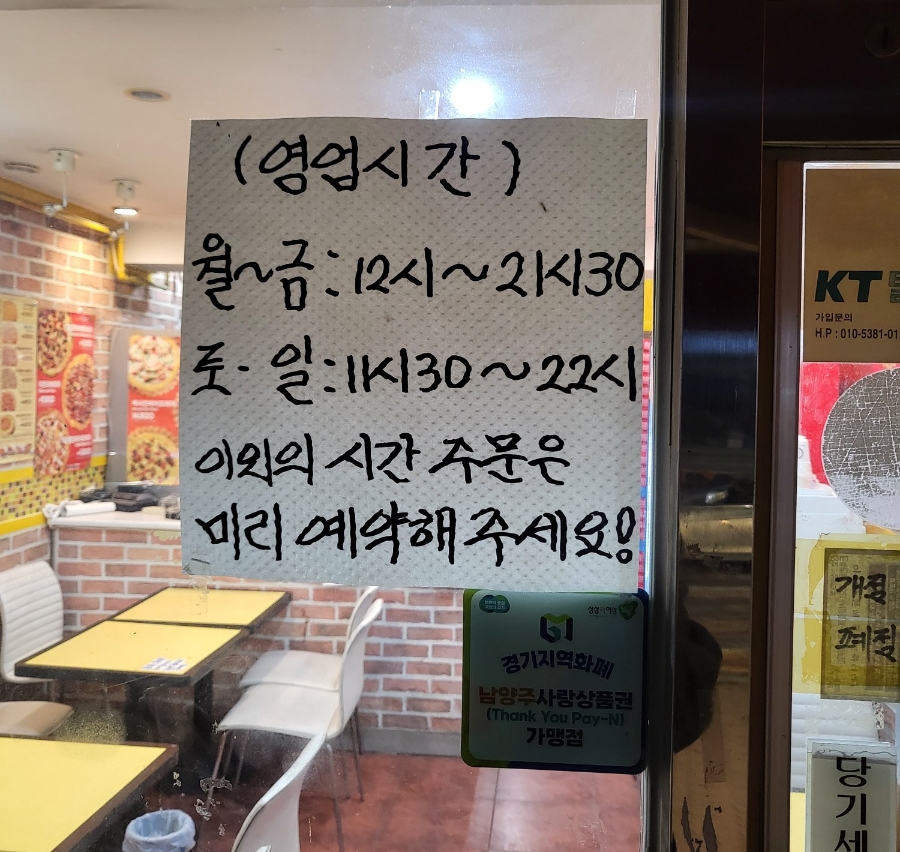 (영업시간)
월~금:12시~21시30
토·일:11시30~22시
이외의 시간 주문은
미리 예약해 주세요!
경기지역화폐
남양주사랑상품권
(Thank You Pay-N)
가맹점
KT
가입문의
H.P : 010-5381-01
당기세